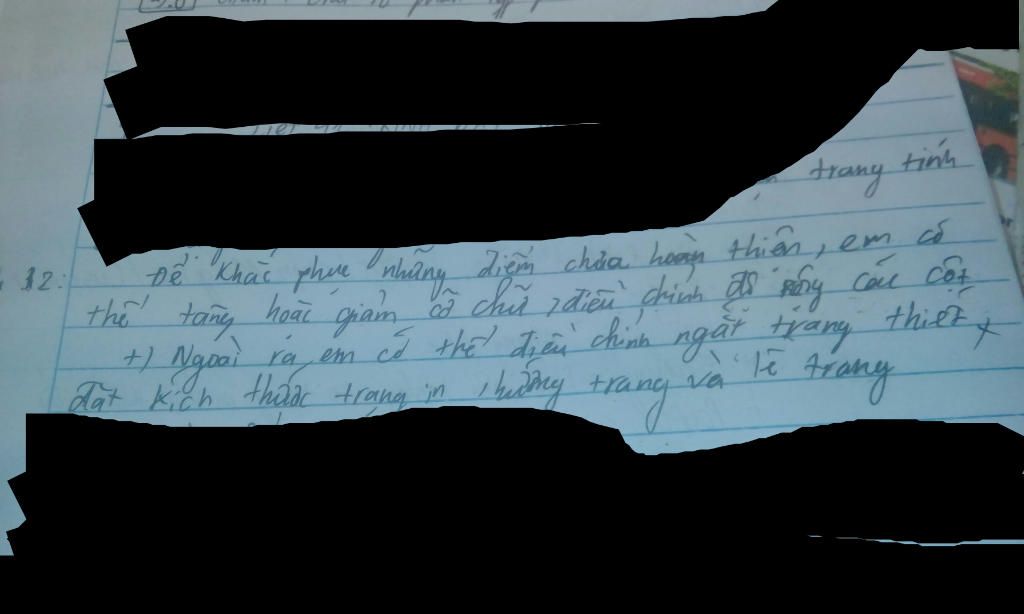 trang tính
12:
Để khắc phục những điểm chưa hoàn thiện, em có
thể tăng hoặc giảm cỡ chữ, điều chỉnh độ rộng các cột
+) Ngoài ra em có thể điều chỉnh ngắt trang thiết
đặt kích thước trang in, hướng trang và lề trang